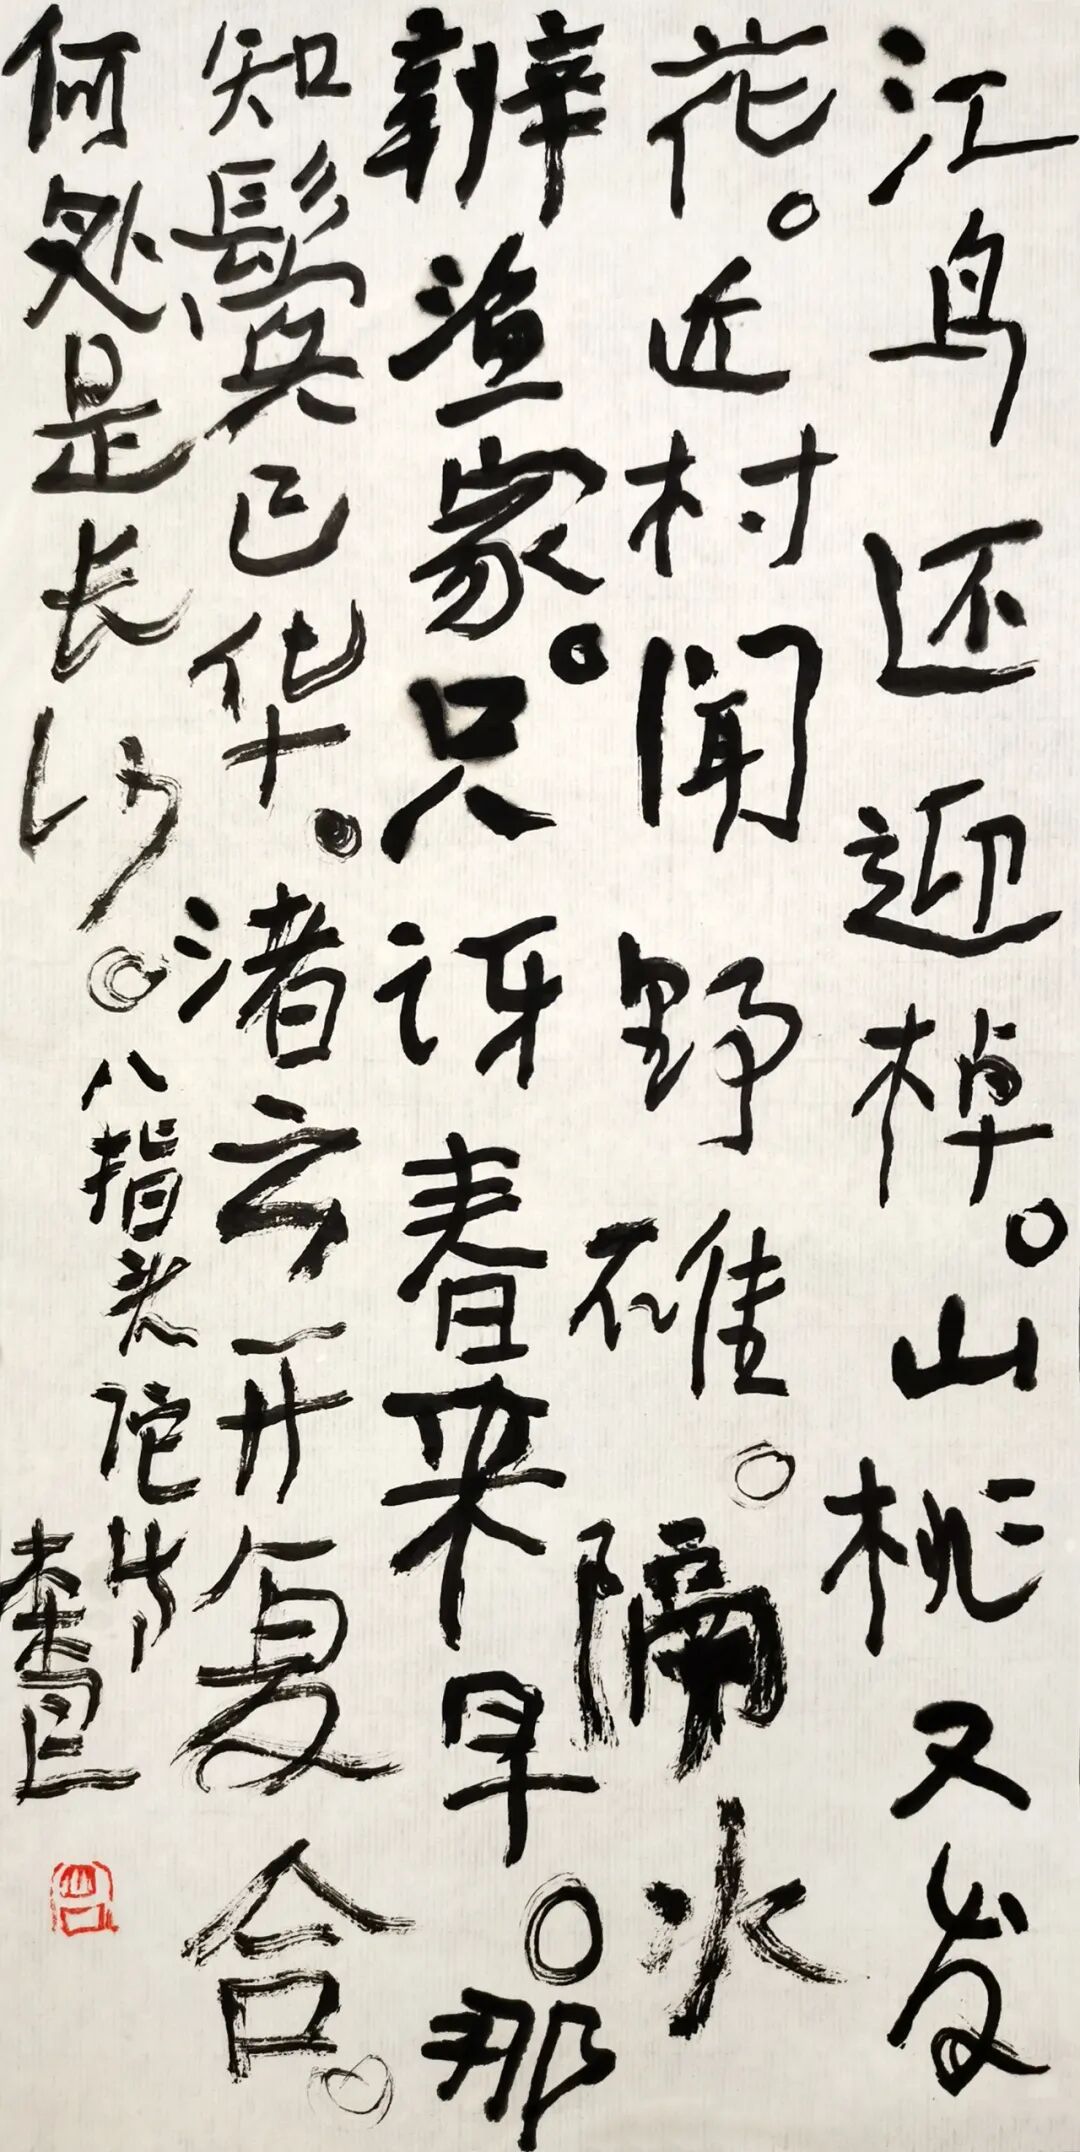 江鸟还迎棹。山桃又发
花。近村闻野碓。隔水
辨渔家。只讶春来早。那
知鬓已华。渚云开复合。
何处是长沙。
八指头陀诗